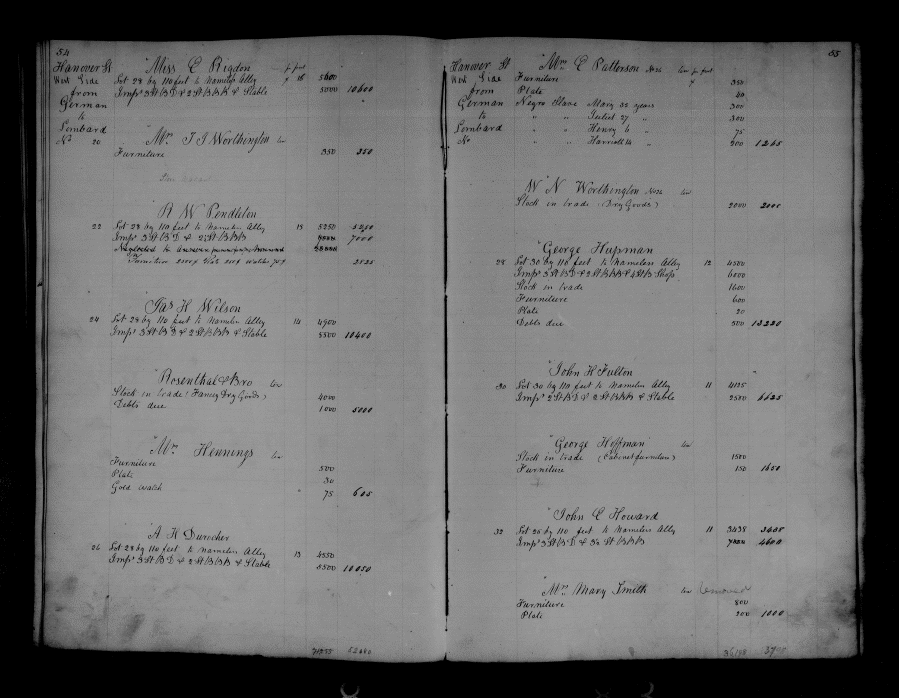 54
Hanover St Miss E Rigdon pr foot
West Side Lot 28 by 110 feet to Nameless Alley 18 5600
from Imps 3 St B D & 2 St B B B & Stable 5000 10600
German
to
Lombard
No 20 Mr T J Worthington
Furniture 350 350
R W Pendleton
22 Lot 28 by 110 feet to Nameless Alley 13 5250 5250
Imps 3 St B D & 2 St B B B 7000
Neglected to
Furniture Plate Watches 2825
Jas H Wilson
24 Lot 28 by 110 feet to Nameless Alley 14 4900
Imps 3 St B D & 2 St B B B & Stable 5500 10400
Rosenthal & Bro
Stock in trade (Fancy Dry Goods) 4000
Debts due 1000 5000
Mrs Hennings
Furniture 500
Plate 30
Gold watch 75 605
A H Durocher
26 Lot 28 by 110 feet to Nameless Alley 13 4550
Imps 3 St B D & 2 St B B B & Stable 5500 10050
55
Hanover St Mrs E Patterson pr foot
West Side Furniture 350
from Plate 40
German Negro Slave Mary 35 years 300
to " " Juliet 27 " 300
Lombard " " Henry 6 " 75
No " " Harriett 14 " 200 1265
W N Worthington
Stock in trade (Dry Goods) 2000 2000
George Hupman
28 Lot 30 by 110 feet to Nameless Alley 12 4500
Imps 3 St B D & 2 St B B B & 4 St B Shop 6000
Stock in trade 1600
Furniture 600
Plate 20
Debts due 500 13220
John H Fulton
30 Lot 30 by 110 feet to Nameless Alley 11 4125
Imps 2 St B D & 2 St B B B & Stable 2500 6625
George Hoffman
Stock in trade (Cabinet furniture) 1500
Furniture 150 1650
John E Howard
32 Lot 25 by 110 feet to Nameless Alley 11 3438 3438
Imps 3 St B D & 3 St B B B 4600
Mrs Mary Smith removed
Furniture 800
Plate 200 1000